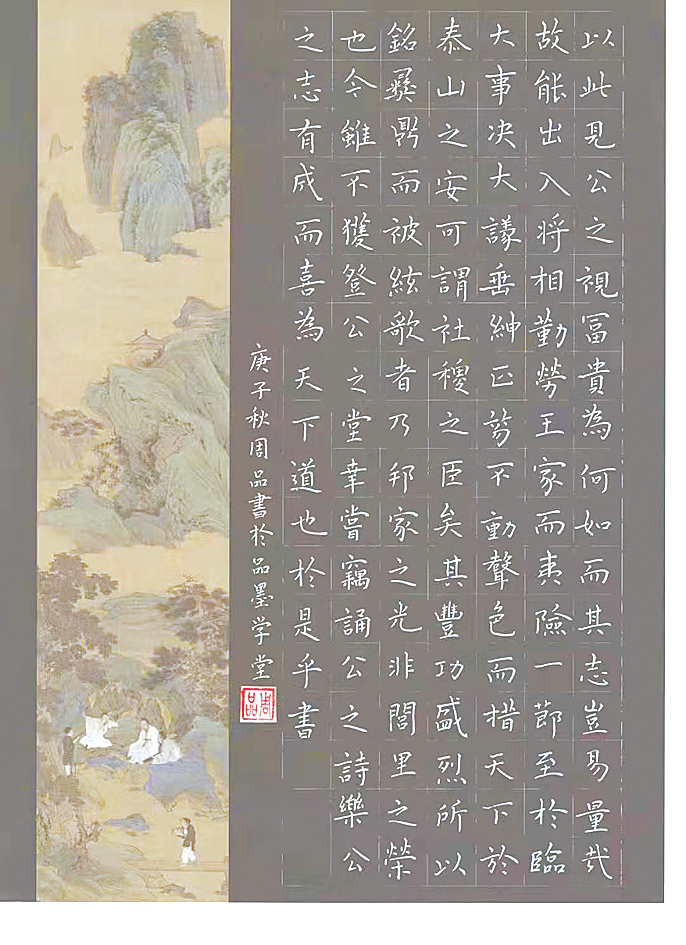 以此見公之視冨貴為何如而其志豈易量哉
故能出入将相勤勞王家而夷險一節至扵臨
大事决大議垂紳正笏不動聲色而措天下於
泰山之安可謂社稷之臣矣其豐功盛烈所以
銘彞鼎而被絃歌者乃邦家之光非閭里之榮
也今雖不獲登公之堂幸嘗竊誦公之詩樂公
之志有成而喜為天下道也扵是乎書
庚子秋周品書扵品墨学堂
周品